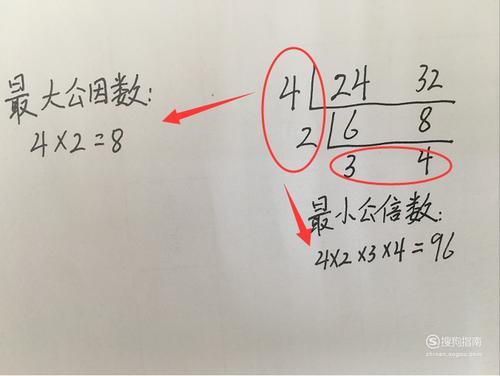 最大公因数:
4×2=8
4 24 32
2 6 8
3 4
最小公倍数:
4×2×3×4=96
搜狗指南
zhinan.sogou.com